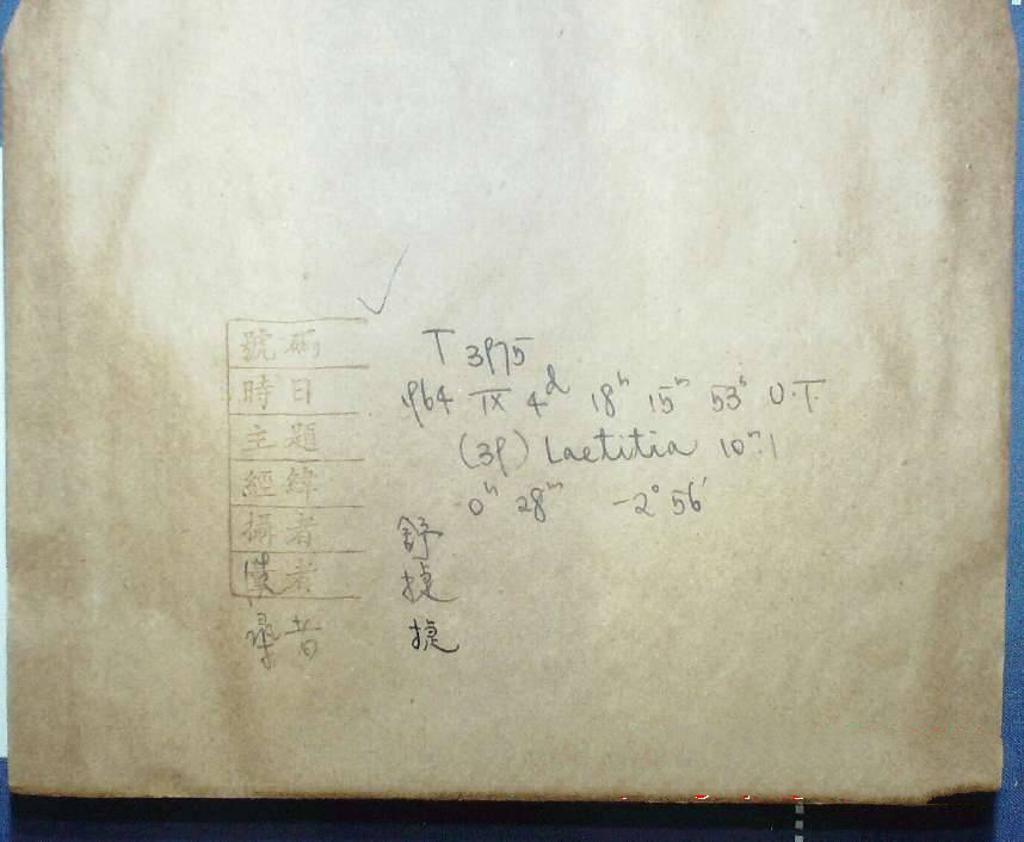 號碼 T 3975
時日 1964 IX 4d 18h 15m 53s U.T.
主題 (39) Laetitia 10m.1
經緯 0h 28m -2° 56′
攝者 舒
者 捷
者 捷